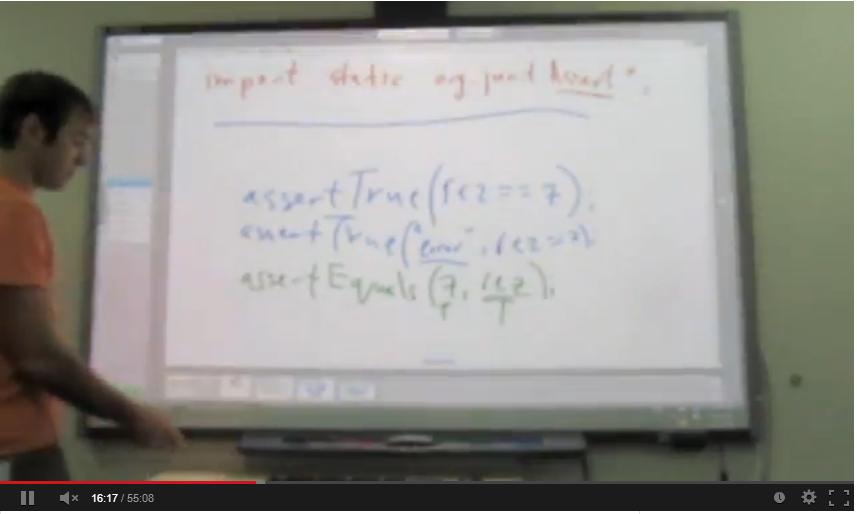 import static org.junit Assert *;
assertTrue(rez == 7);
assertTrue("error", rez = 7);
assertEquals(7, rez);
16:17 / 55:08